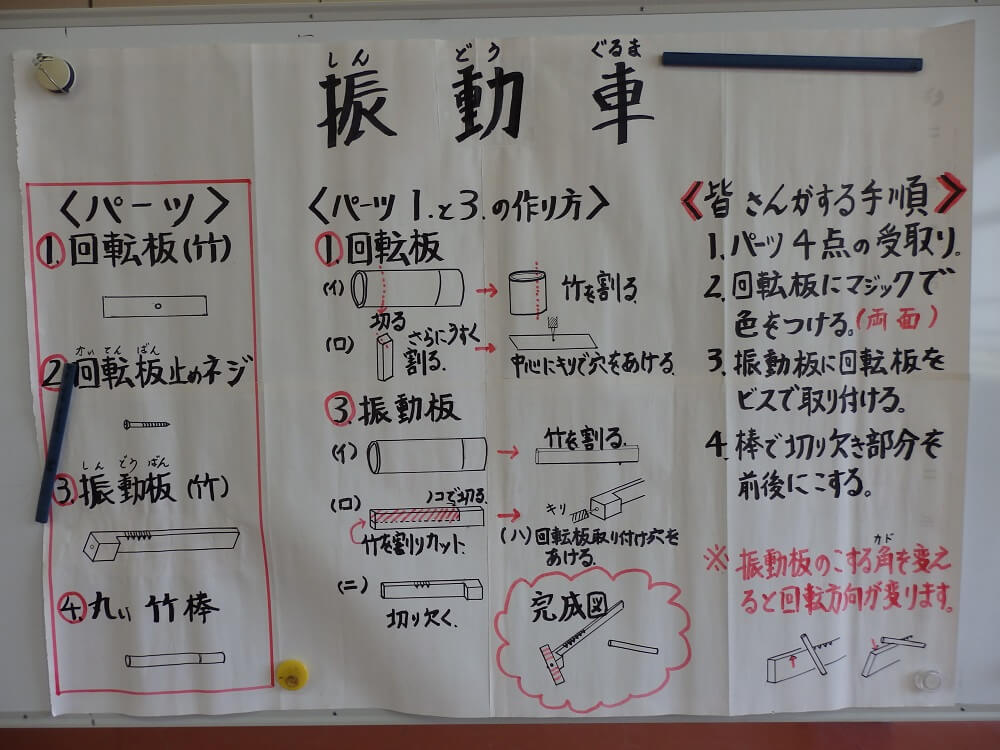 しん どう ぐるま
振動車
〈パーツ〉
1.回転板(竹)
かいてんばん
2.回転板止めネジ
しんどうばん
3.振動板(竹)
4.丸い竹棒
〈パーツ1.と3.の作り方〉
1.回転板
(イ)
切る
竹を割る.
(ロ)
さらにうすく
割る.
中心にキリで穴をあける.
3.振動板
(イ)
竹を割る.
(ロ)
ノコで切る.
竹を割りカット.
キリ
(ハ)回転板取り付け穴を
あける.
(ニ)
切り欠く.
完成図
《皆さんがする手順》
1.パーツ4点の受取り.
2.回転板にマジックで
色をつける.(両面)
3.振動板に回転板を
ビスで取り付ける。
4.棒で切り欠き部分を
前後にこする。
カド
※振動板のこする角を変え
ると回転方向が変ります。